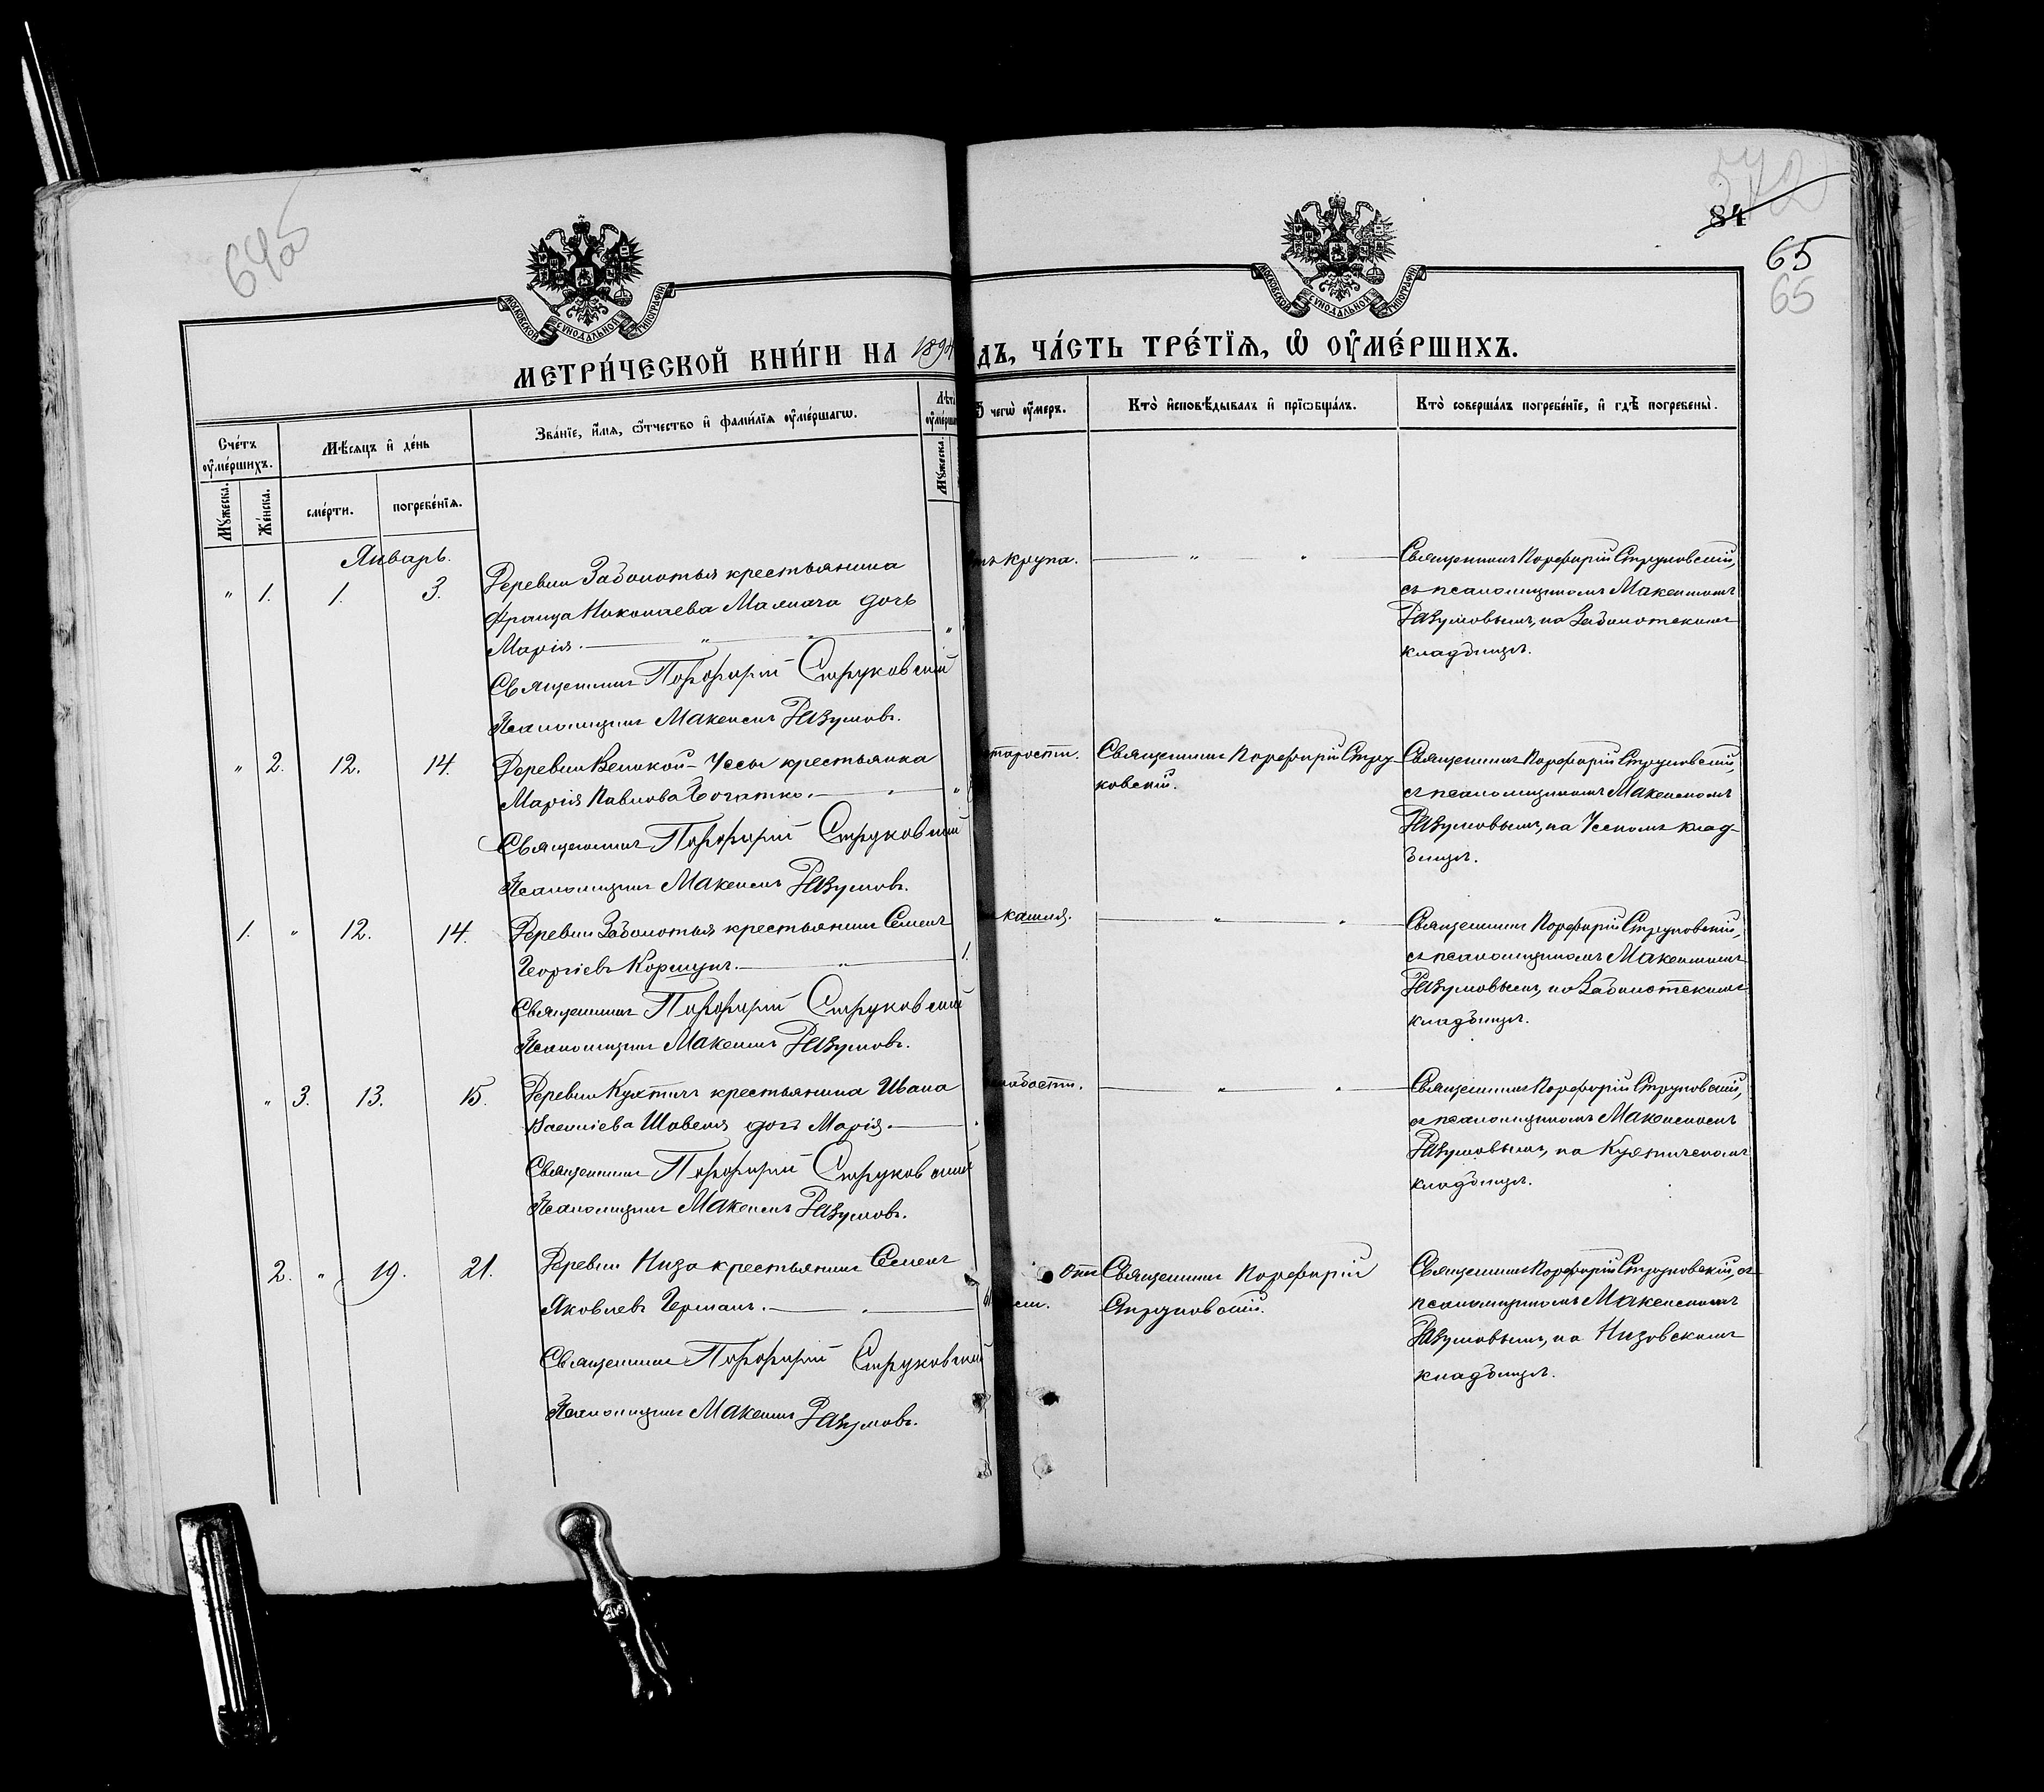 64об
84
65
65
МОСКОВСКОЙ СУНОДАЛЬНОЙ ТИПОГРАФІИ
МОСКОВСКОЙ СУНОДАЛЬНОЙ ТИПОГРАФІИ
МЕТРИ́ЧЕСКОЙ КНИ́ГИ НА 189 ДЪ, ЧА́СТЬ ТРЕ́ТІѦ, Ѡ҆ ОУ҆МЕ́РШИХЪ.
Сче́тъ оу҆ме́ршихъ.
Мѣ́сяцъ и҆ де́нь
Зва́нїе, и҆́мѧ, ѻ҆́тчество и҆ фами́лїѧ оу҆ме́ршагѡ.
Лѣт
оу҆ме́рша
ѿ чегѡ̀ оу҆́меръ.
Кто̀ и҆сповѣ́дывалъ и҆ прїѡбща́лъ.
Кто̀ соверша́лъ погребе́нїе, и҆ гдѣ̀ погребены̀.
Мꙋжеска.
Же́нска.
сме́рти.
погребе́нїѧ.
Мꙋжеска.
Январь.
" 1. 1. 3. Деревни Заболотья крестьянина
Франца Николаева Малаго дочь
Марія. " "
Священникъ Порфирій Струковскій
Псаломщикъ Максимъ Разумовъ.
крупа.
" "
Священникъ Порфирій Струковскій,
съ псаломщикомъ Максимомъ
Разумовымъ, на Заболотскомъ
кладбищѣ.
" 2. 12. 14. Деревни Великой-Уссы крестьянка
Марія Павлова Богатко. "
Священникъ Порфирій Струковскій
Псаломщикъ Максимъ Разумовъ.
старости.
Священникъ Порфирій Стру-
ковскій.
Священникъ Порфирій Струковскій,
съ псаломщикомъ Максимомъ
Разумовымъ, на Усскомъ клад-
бищѣ.
1. " 12. 14. Деревни Заболотья крестьянинъ Семенъ
Георгіевъ Коршунъ. " 1.
Священникъ Порфирій Струковскій
Псаломщикъ Максимъ Разумовъ.
кашля.
" "
Священникъ Порфирій Струковскій,
съ псаломщикомъ Максимомъ
Разумовымъ, на Заболотскомъ
кладбищѣ.
" 3. 13. 15. Деревни Кухтичъ крестьянина Ивана
Васильева Шавеля дочь Марія.
Священникъ Порфирій Струковскій
Псаломщикъ Максимъ Разумовъ.
слабости.
" "
Священникъ Порфирій Струковскій,
съ псаломщикомъ Максимомъ
Разумовымъ, на Кухтичскомъ
кладбищѣ.
2. " 19. 21. Деревни Низа крестьянинъ Семенъ
Яковлевъ Германъ. "
Священникъ Порфирій Струковскій
Псаломщикъ Максимъ Разумовъ.
Отъ
Священникъ Порфирій
Струковскій.
Священникъ Порфирій Струковскій, съ
псаломщикомъ Максимомъ
Разумовымъ, на Низовскомъ
кладбищѣ.